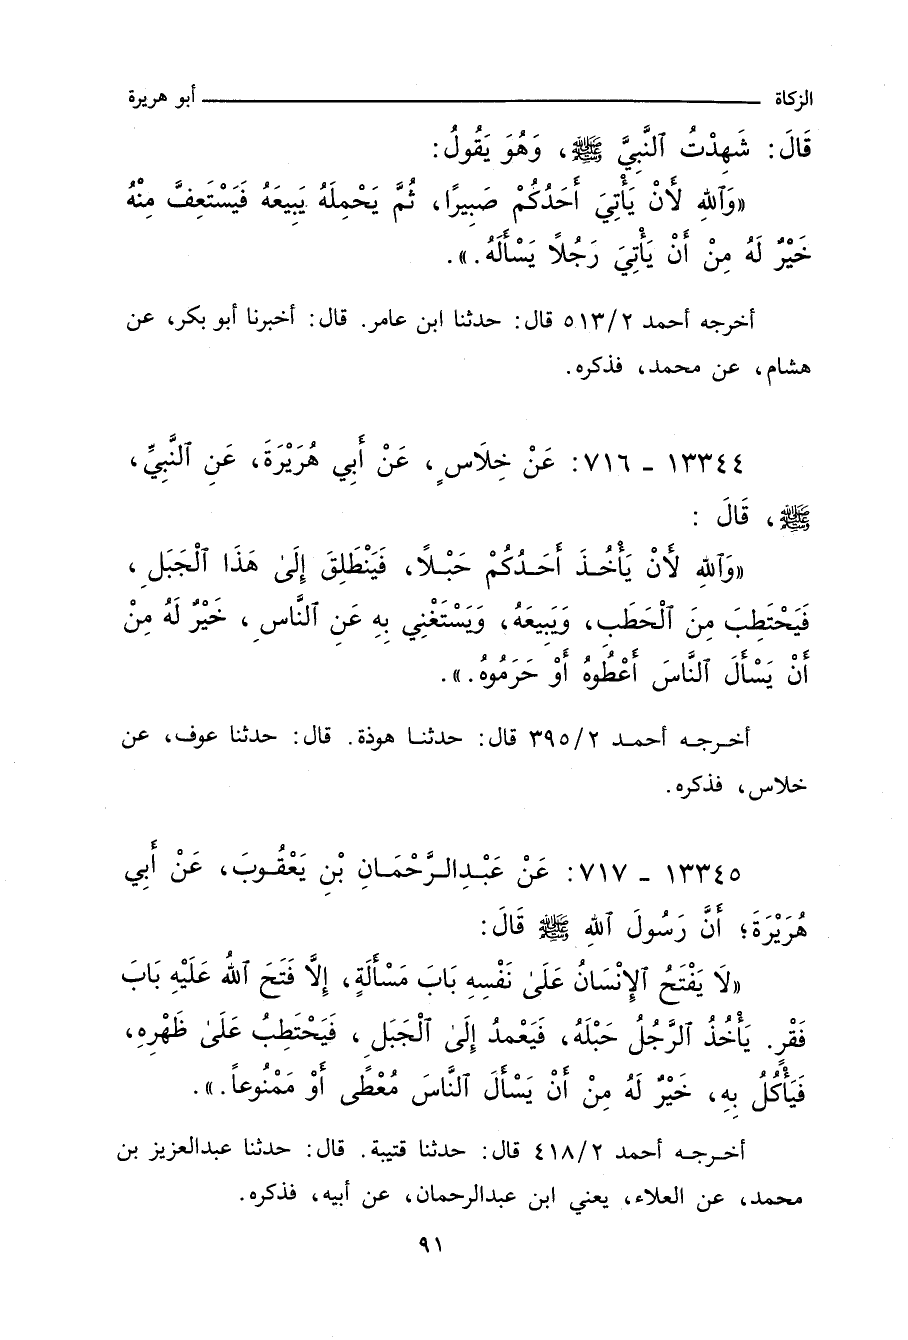 الزكاة ــــــــــــــــــــــــ أبو هريرة
قَالَ: شَهِدْتُ ٱلنَّبِيَّ ﷺ، وَهُوَ يَقُولُ:
«وَٱللهِ لَأَنْ يَأْتِيَ أَحَدُكُمْ صَبِيرًا، ثُمَّ يَحْمِلَهُ يَبِيعَهُ فَيَسْتَعِفَّ مِنْهُ
خَيْرٌ لَهُ مِنْ أَنْ يَأْتِيَ رَجُلاً يَسْأَلَهُ.».
أخرجه أحمد ٥١٣/٢ قال: حدثنا ابن عامر. قال: أخبرنا أبو بكر، عن
هشام، عن محمد، فذكره.
١٣٣٤٤ - ٧١٦: عَنْ خِلَاسٍ، عَنْ أَبِي هُرَيْرَةَ، عَنِ ٱلنَّبِيِّ،
ﷺ، قَالَ :
«وَٱللهِ لَأَنْ يَأْخُذَ أَحَدُكُمْ حَبْلاً، فَيَنْطَلِقَ إِلَىٰ هَذَا ٱلْجَبَلِ،
فَيَحْتَطِبَ مِنَ ٱلْحَطَبِ، وَيَبِيعَهُ، وَيَسْتَغْنِي بِهِ عَنِ ٱلنَّاسِ، خَيْرٌ لَهُ مِنْ
أَنْ يَسْأَلَ ٱلنَّاسَ أَعْطُوهُ أَوْ حَرَمُوهُ.».
أخرجه أحمد ٣٩٥/٢ قال: حدثنا هوذة. قال: حدثنا عوف، عن
خلاس، فذكره.
١٣٣٤٥ - ٧١٧: عَنْ عَبْدِالرَّحْمَانِ بْنِ يَعْقُوبَ، عَنْ أَبِي
هُرَيْرَةَ؛ أَنَّ رَسُولَ ٱللهِ ﷺ قَالَ:
«لَا يَفْتَحُ ٱلْإِنْسَانُ عَلَىٰ نَفْسِهِ بَابَ مَسْأَلَةٍ، إِلَّا فَتَحَ ٱللهُ عَلَيْهِ بَابَ
فَقْرٍ. يَأْخُذُ ٱلرَّجُلُ حَبْلَهُ، فَيَعْمِدُ إِلَىٰ ٱلْجَبَلِ، فَيَحْتَطِبُ عَلَىٰ ظَهْرِهِ،
فَيَأْكُلُ بِهِ، خَيْرٌ لَهُ مِنْ أَنْ يَسْأَلَ ٱلنَّاسَ مُعْطًى أَوْ مَمْنُوعاً.».
أخرجه أحمد ٤١٨/٢ قال: حدثنا قتيبة. قال: حدثنا عبدالعزيز بن
محمد، عن العلاء، يعني ابن عبدالرحمان، عن أبيه، فذكره.
٩١